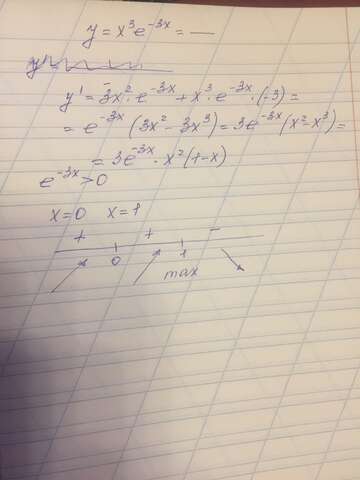 y = x³e⁻³ˣ = —
y' = 3x²·e⁻³ˣ + x³·e⁻³ˣ·(-3) =
= e⁻³ˣ (3x² - 3x³) = 3e⁻³ˣ(x² - x³) =
= 3e⁻³ˣ · x²(1-x)
e⁻³ˣ > 0
x=0 x=1
+ + -
0 1
max